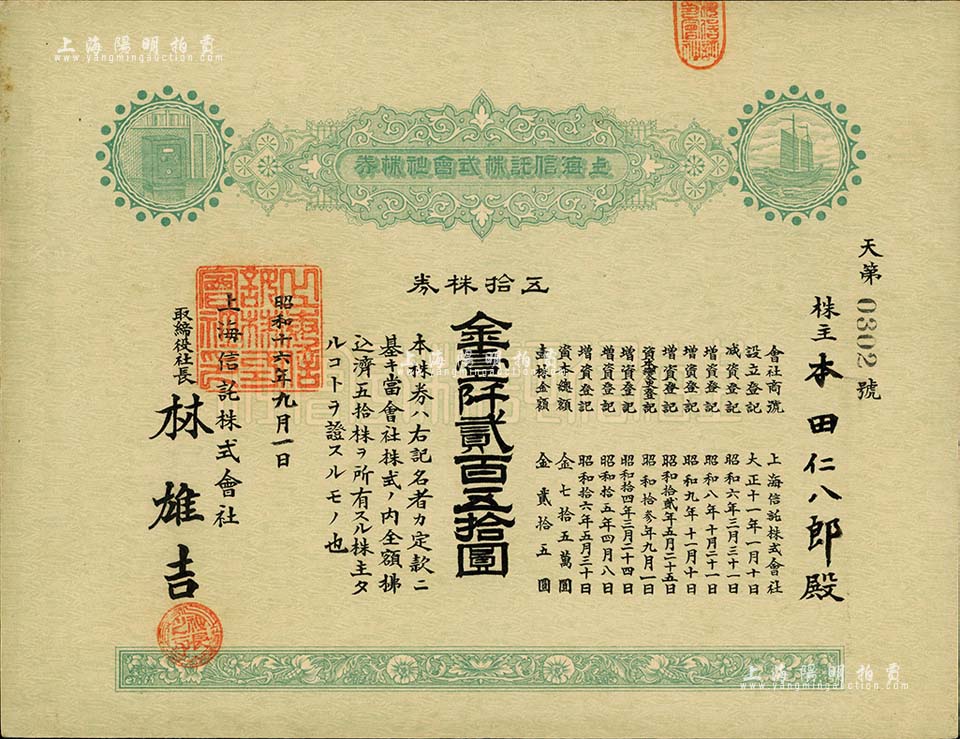 上海陽明拍賣
www.yangmingauction.com
上海信託株式會社株券
五拾株券
天第0302號
株主 本田仁八郎殿
會社商號 上海信託株式會社
設立登記 大正十一年一月十日
減資登記 昭和六年三月三十一日
增資登記 昭和八年十月二十一日
增資登記 昭和九年十一月十日
增資登記 昭和拾貳年五月二十五日
資登記 昭和拾參年九月一日
增資登記 昭和拾四年三月二十四日
增資登記 昭和拾五年四月八日
增資登記 昭和拾六年五月三十日
資本總額 金七拾五萬圓
壹株金額 金貳拾五圓
金壹仟貳百五拾圓
本株券ハ右記名者カ定款ニ
基キ當會社株式ノ内全額拂
込濟五拾株ヲ所有スル株主タ
ルコトヲ證スルモノ也
昭和十六年九月一日
上海信託株式會社
取締役社長 林雄吉
上海陽明拍賣
www.yangmingauction.com
上海陽明拍賣
www.yangmingauction.com